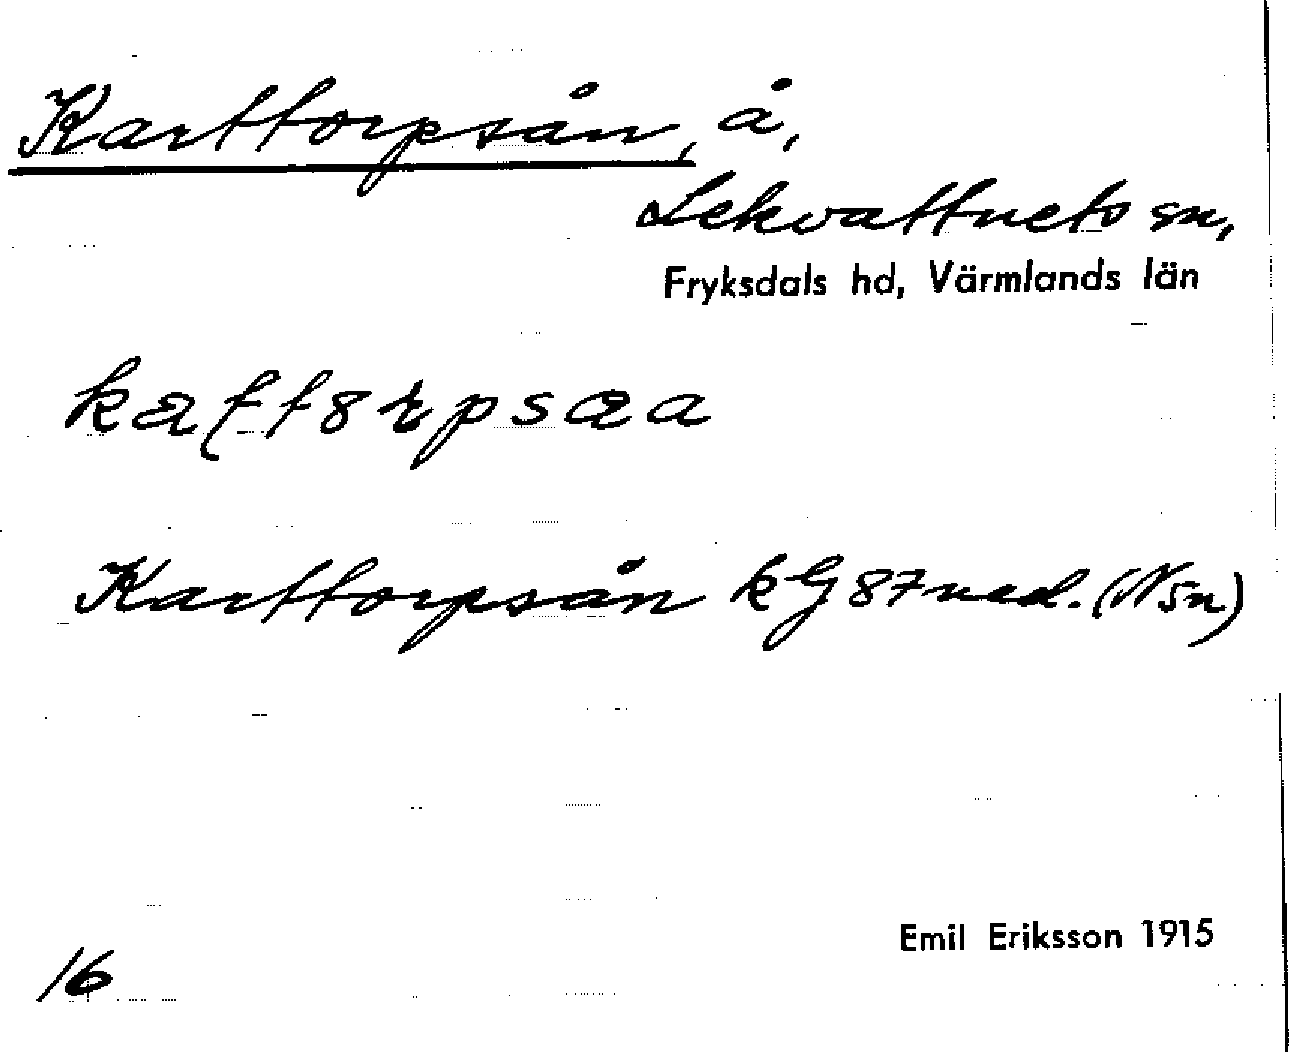 Karttorpsån, å,
Lekvattnets sn,
Fryksdals hd, Värmlands län
Karttorpsån kG 87 ned. (N5n)
Emil Eriksson 1915
16